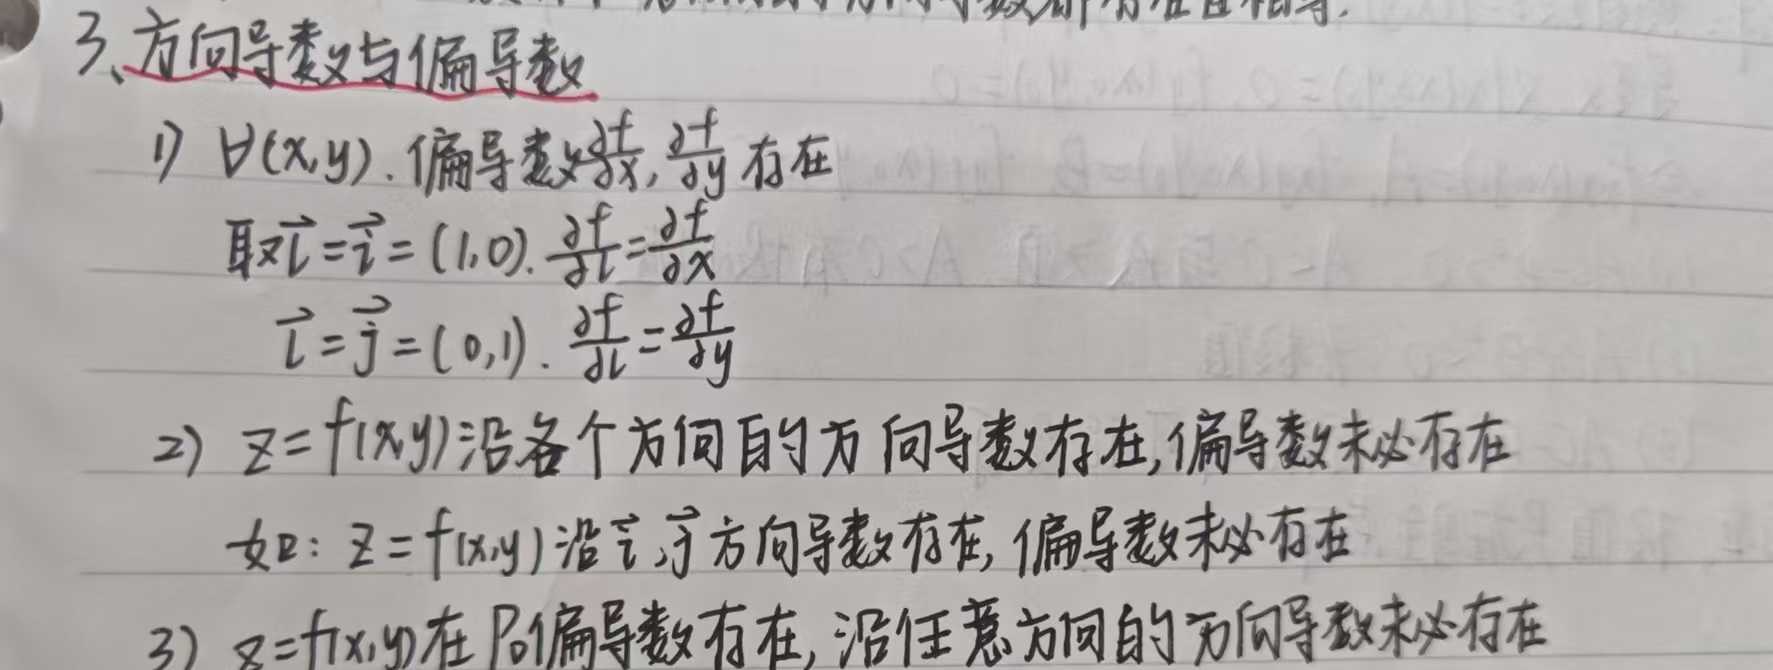 3、方向导数与偏导数
1) ∀(x,y). 偏导数∂f/∂x, ∂f/∂y 存在
取l⃗=i⃗=(1,0). ∂f/∂l=∂f/∂x
l⃗=j⃗=(0,1). ∂f/∂l=∂f/∂y
2) z=f(x,y)沿各个方向的方向导数存在,偏导数未必存在
如: z=f(x,y)沿i⃗,j⃗方向导数存在,偏导数未必存在
3) z=f(x,y)在P0偏导数存在,沿任意方向的方向导数未必存在